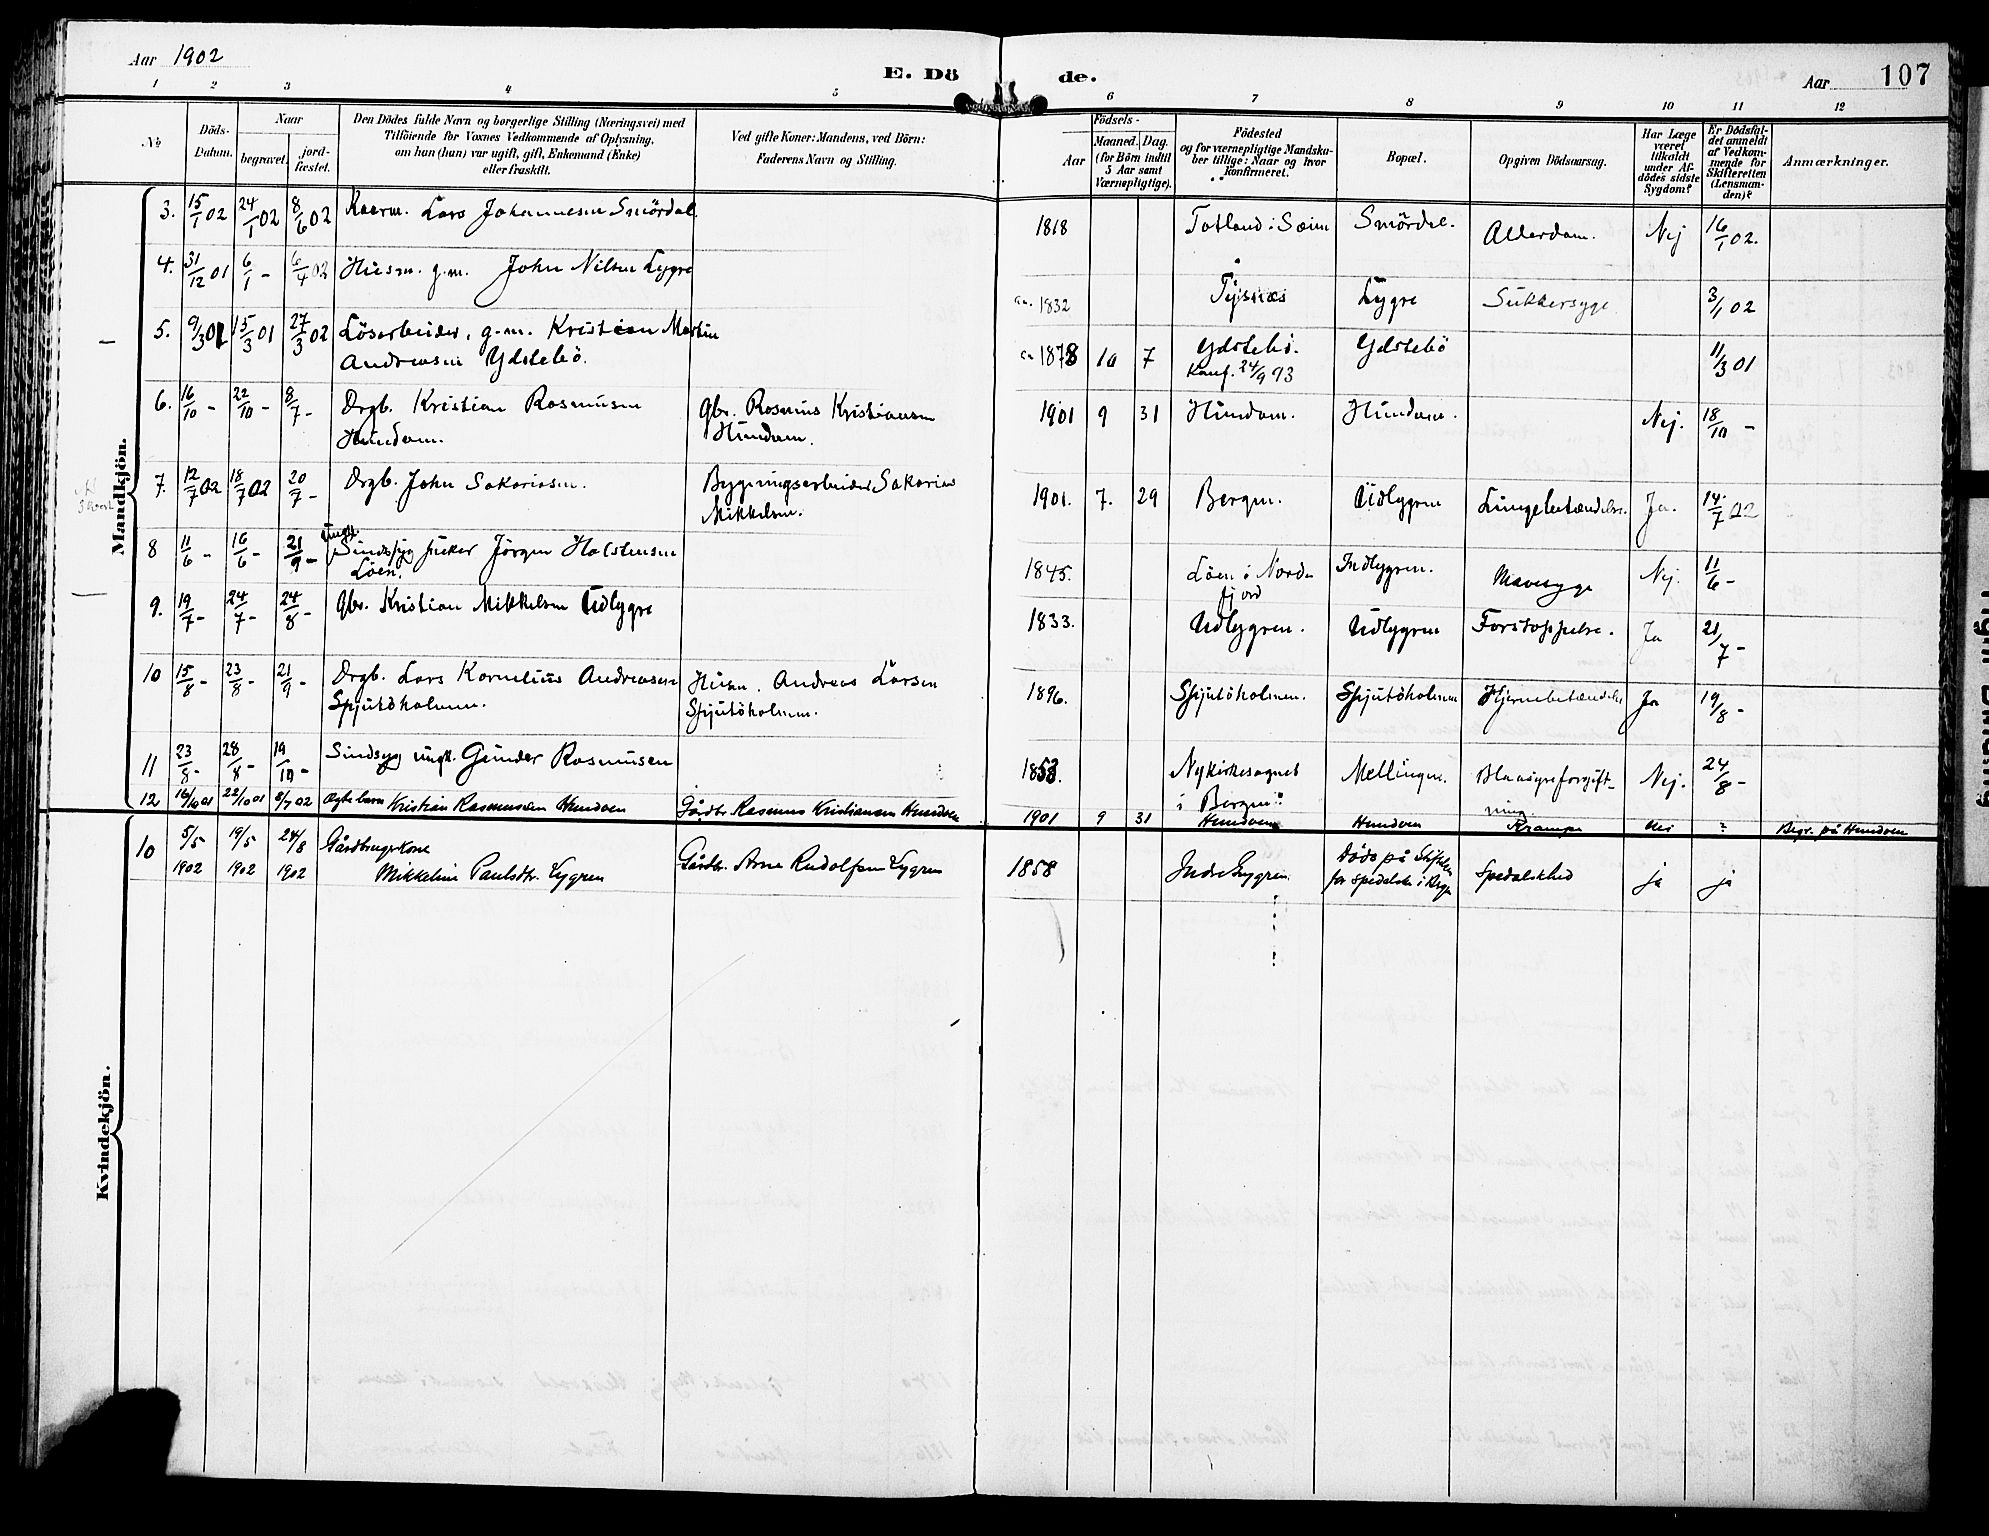 Aar 1902
E. Dö
de.
Aar
107
1 2 3 4 5 6 7 8 9 10 11 12
№
Döds-
Datum.
Naar
begravet.
jord-
fæstet.
Den Dödes fulde Navn og borgerlige Stilling (Næringsvei) med
Tilföiende for Voxnes Vedkommende af Oplysning,
om han (hun) var ugift, gift, Enkemand (Enke)
eller fraskilt.
Ved gifte Koner: Mandens, ved Börn:
Faderens Navn og Stilling.
Födsels-
Aar
Maaned.
Dag.
(for Börn indtil
5 Aar samt
Værnepligtige).
Födested
og for værnepligtige Mandska-
ber tillige: Naar og hvor
konfirmeret.
Bopæl.
Opgiven Dödsaarsag.
Har Læge
været
tilkaldt
under Af-
dödes sidste
Sygdom?
Er Dödsfal-
det anmeldt
af Vedkom-
mende for
Skifteretten
(Lensman-
den)?
Anmærkninger.
Mandkjön.
3. 15/1 02 24/1 02 8/6 02 Kaarm. Lars Johannesen Smördal. 1818 Totland i Sæim Smördal. Alderdom. Nej 16/1 02.
4. 31/12 01 6/1 - 6/4 02 Husm. g.m. John Nilsen Lygre ca. 1832 Tysnæs Lygre Sukkersyge 3/1 02
5. 9/3 01 15/3 01 27/3 02 Lösarbeider, g.m. Kristian Martin
Andreasen Ydstebö. ca 1878 10 7 Ydstebö. Ydstebö 11/3 01
Konf. 24/9 93
6. 16/10 - 22/10 - 8/7 - Ægb. Kristian Rasmusen Gbr. Rasmus Kristiansen 1901 9 31 Hundom. Hundom. Nej. 18/10 -
Hundom. Hundom.
7. 12/7 02 18/7 02 20/7 - Ægb. John Sakariasen. Bygningsarbeider Sakarias 1901. 7. 29 Bergen. Udlygren Lungebetændelse. Ja. 14/7 02
Mikkelsen.
ungk.
8 11/6 - 16/6 - 21/9 - Sindssyg Jörgen Holstensen 1845. Löen i Nord- Indlygren. Mavesyge Nej. 11/6 -
Löen. fjord
9. 19/7 - 24/7 - 24/8 - Gbr. Kristian Mikkelsen Udlygre 1833. Udlygren. Udlygren Forstoppelse. Ja 21/7 -
10 15/8 - 23/8 - 21/9 - Ægb. Lars Kornelius Andreasen Husm. Andreas Larsen 1896. Spjutöholmen. Spjutöholmen Hjernebetændelse Ja 19/8 -
Spjutöholmen. Spjutöholmen.
11 23/8 - 28/8 - 19/10 - Sindsyg ungk. Gunder Rasmusen 1853. Nykirkesognet Mellingen. Blaasyreforgift- Nej. 24/8 -
i Bergen. ning
12 16/10 01 22/10 01 8/7 02 Ægtebarn Kristian Rasmussen Hundven Gårdbr. Rasmus Kristiansen Hundven 1901 9 31 Hundven Hundven Krampe nei ? Begr. på Hundven
Kvindekjön.
10 5/5 19/5 24/8 Gårdbrugerkone
1902 1902 1902 Mikkeline Paulsdtr. Lygren Gårdbr. Arne Rudolfsen Lygren 1858 Indre Lygren Döde på Stiftelsen Spedalskhed ja ja
for spedalske i Bergen